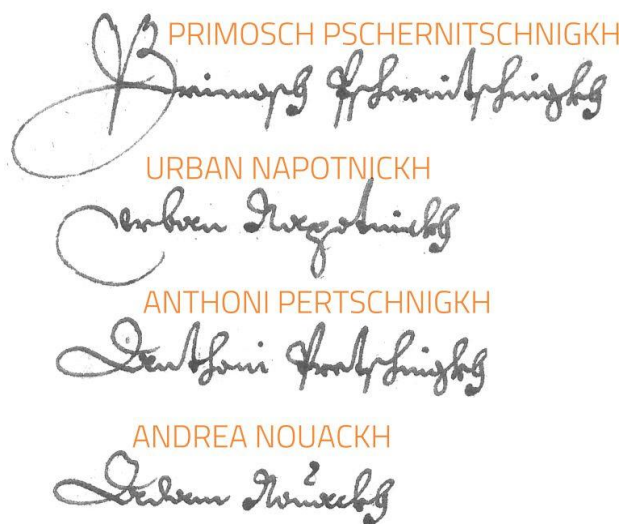 PRIMOSCH PSCHERNITSCHNIGKH
Primosch Pschernitschnigkh
URBAN NAPOTNICKH
Urban Napotnickh
ANTHONI PERTSCHNIGKH
Anthoni Pertschnigkh
ANDREA NOUACKH
Adam Nouackh